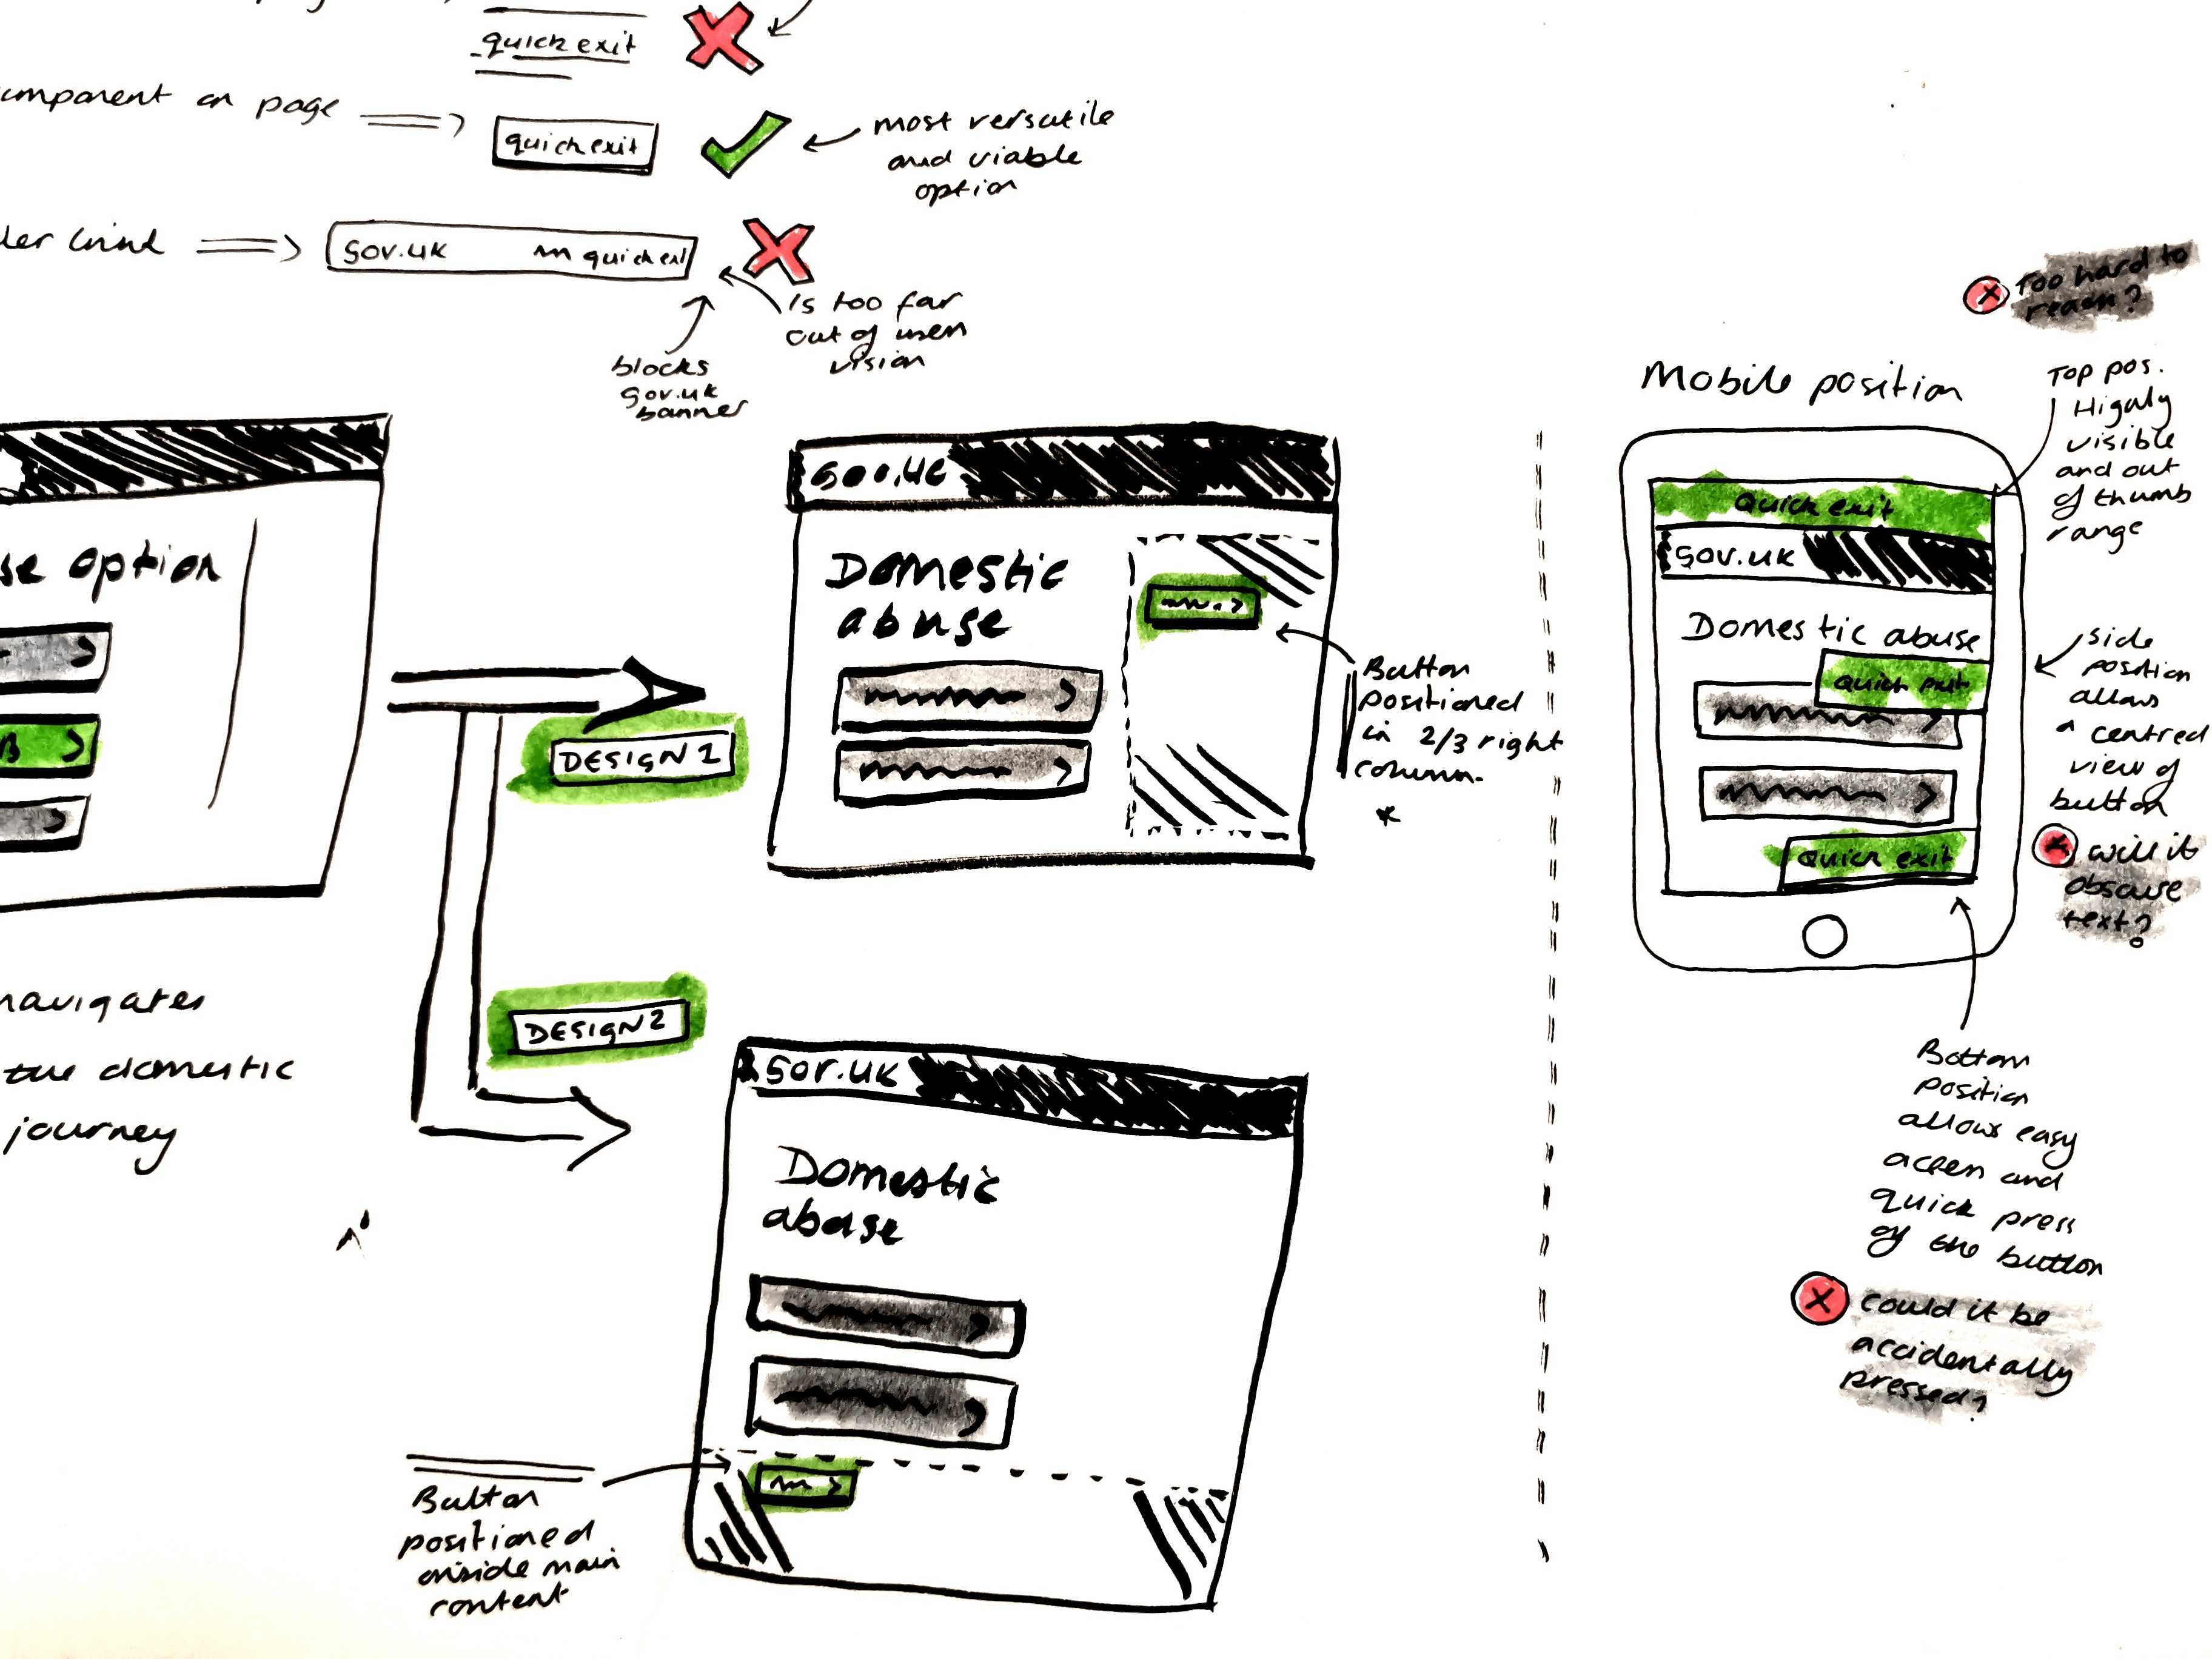 quick exit
component on page
quick exit
most versatile
and viable
option
gov.uk
quick exit
Is too far
out of users
vision
blocks
gov.uk
banner
option
navigates
the domestic
journey
DESIGN 1
gov.uk
Domestic
abuse
Button
positioned
in 2/3 right
column.
*
DESIGN 2
gov.uk
Domestic
abuse
Button
positioned
inside main
content
Mobile position
Too hard to
reach?
Top pos.
Highly
visible
and out
of thumb
range
Quick exit
gov.uk
Domestic abuse
quick exit
Quick exit
side
position
allows
a centred
view of
button
will it
obscure
text?
Bottom
position
allows easy
access and
quick press
of the button
could it be
accidentally
pressed?